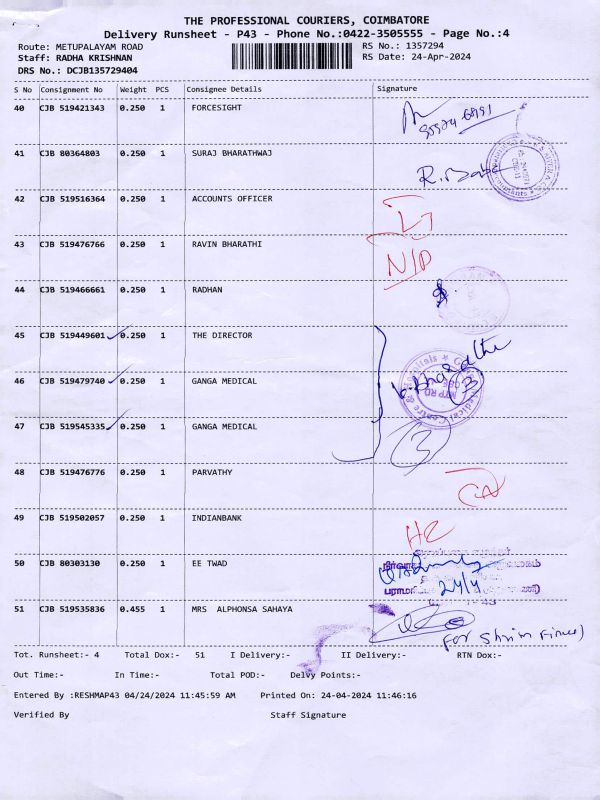 THE PROFESSIONAL COURIERS, COIMBATORE
Delivery Runsheet - P43 - Phone No.:0422-3505555 - Page No.:4
Route: METUPALAYAM ROAD RS No.: 1357294
Staff: RADHA KRISHNAN RS Date: 24-Apr-2024
DRS No.: DCJB135729404
S No Consignment No Weight PCS Consignee Details Signature
40 CJB 519421343 0.250 1 FORCESIGHT
41 CJB 80364803 0.250 1 SURAJ BHARATHWAJ
42 CJB 519516364 0.250 1 ACCOUNTS OFFICER
43 CJB 519476766 0.250 1 RAVIN BHARATHI
N/D
44 CJB 519466661 0.250 1 RADHAN
45 CJB 519449601 0.250 1 THE DIRECTOR
46 CJB 519479740 0.250 1 GANGA MEDICAL
3
47 CJB 519545335 0.250 1 GANGA MEDICAL
3
48 CJB 519476776 0.250 1 PARVATHY
49 CJB 519502057 0.250 1 INDIANBANK
50 CJB 80303130 0.250 1 EE TWAD
24/4
51 CJB 519535836 0.455 1 MRS ALPHONSA SAHAYA
Tot. Runsheet:- 4 Total Dox:- 51 I Delivery:- II Delivery:- RTN Dox:-
Out Time:- In Time:- Total POD:- Delvy Points:-
Entered By :RESHMAP43 04/24/2024 11:45:59 AM Printed On: 24-04-2024 11:46:16
Verified By Staff Signature